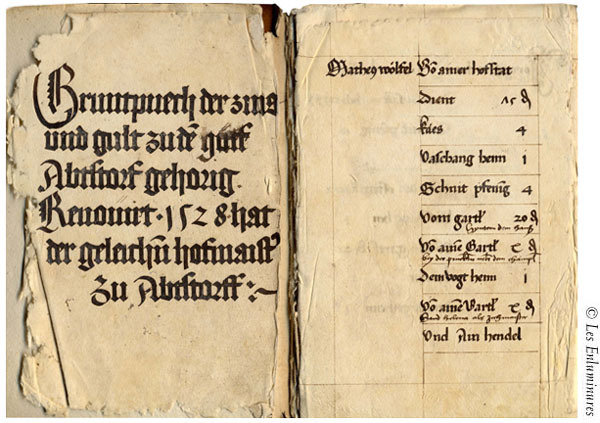 Gruntpuech der zins
und gult zu dē gutt
Abtstorf gehorig.
Renouirt · 1528 · hat
der geleichn̄ hofmaist
Zu Abtstorff :~
Mathe9 wölfel Vō ainer hofstat
dient 15 ₰
kaes 4
Vaschang henn 1
Schnit pfenig 4
Vom gartl 20 ₰
Vō aine Gartl ₰
Dem vogt henn 1
Vō aine Gartl ₰
Und Ain hendel
© Les Enluminures